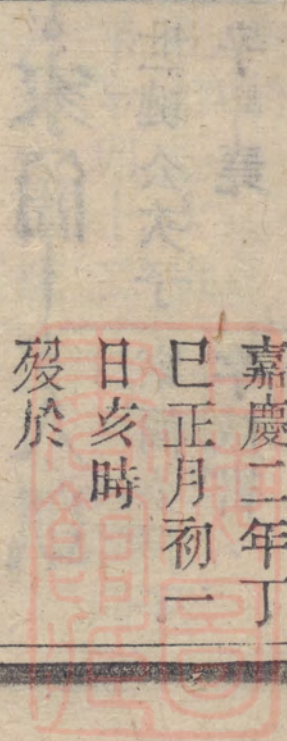 嘉慶二年丁
巳正月初一
日亥時
歿於